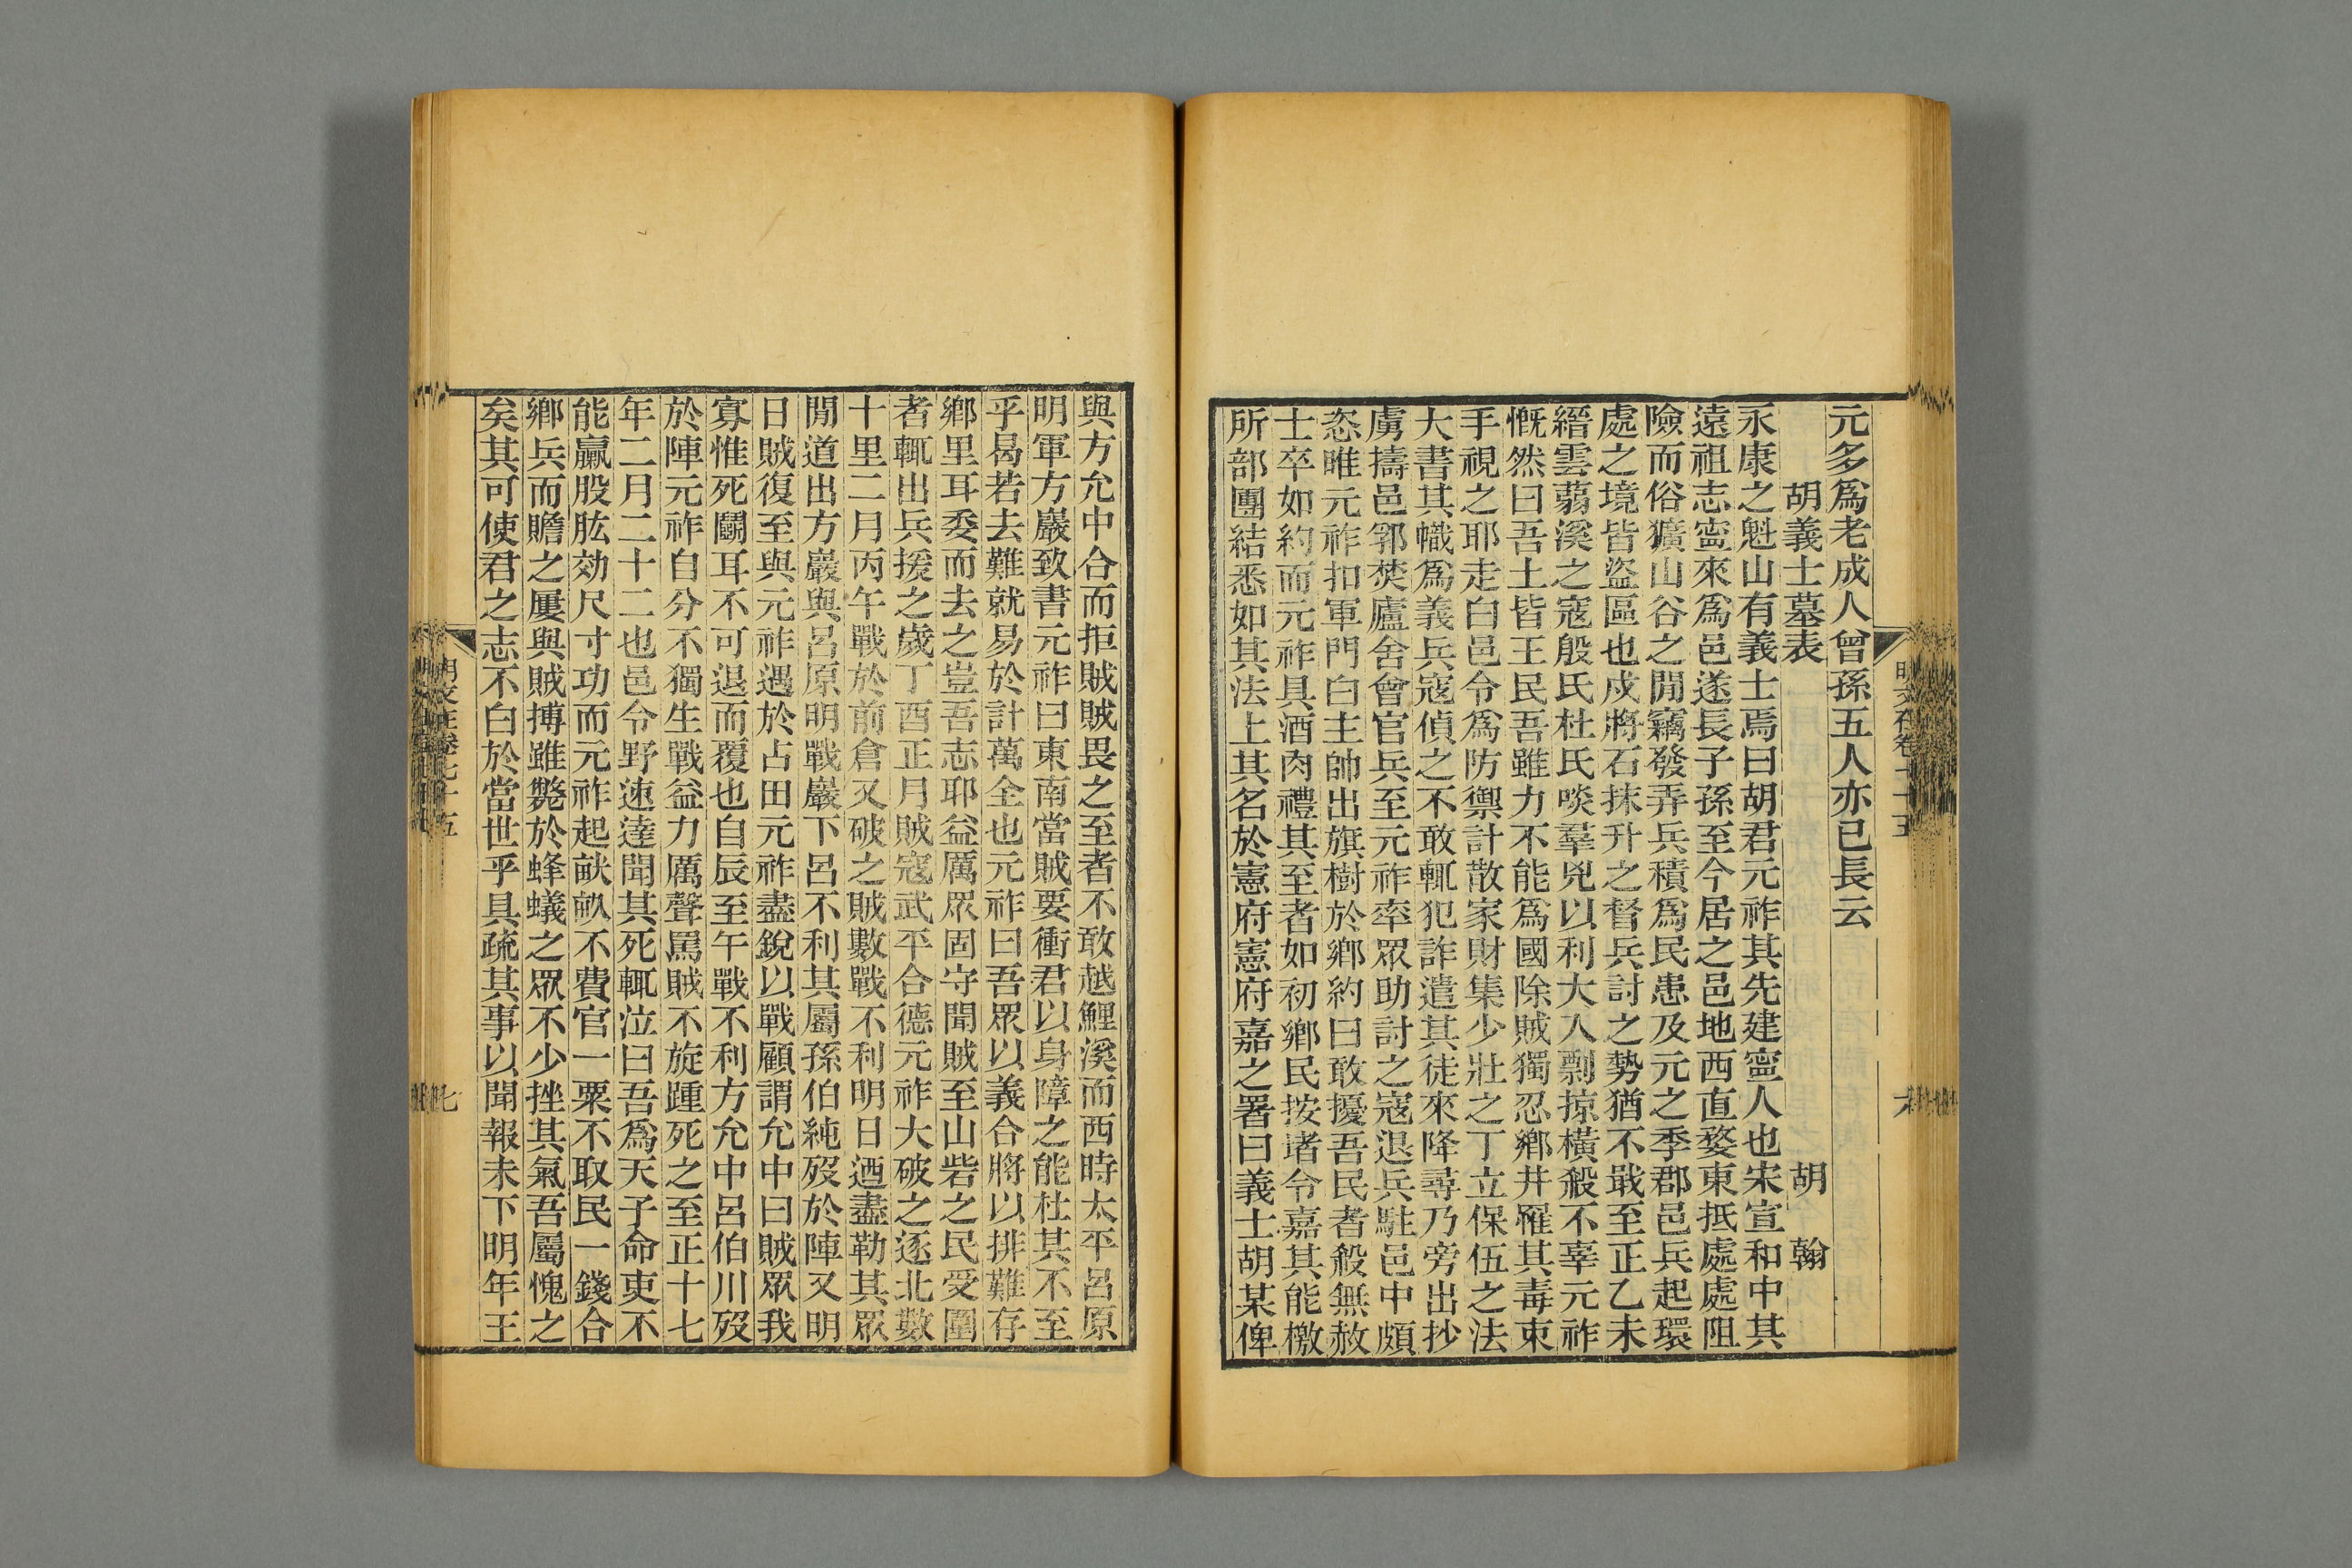 元多爲老成人曾孫五人亦已長云
胡義士墓表 胡翰
永康之魁山有義士焉曰胡君元祚其先建寧人也宋宣和中其
遠祖志寧來爲邑遂長子孫至今居之邑地西直婺東抵處處阻
險而俗獷山谷之閒竊發弄兵積爲民患及元之季郡邑兵起環
處之境皆盜區也戍將石抹升之督兵討之勢猶不戢至正乙未
縉雲蒻溪之寇殷氏杜氏啖羣兇以利大入剽掠橫殺不辜元祚
慨然曰吾土皆王民吾雖力不能爲國除賊獨忍鄉井罹其毒束
手視之耶走白邑令爲防禦計散家財集少壯之丁立保伍之法
大書其幟爲義兵寇偵之不敢輒犯詐遣其徒來降尋乃旁出抄
虜擣邑郛焚廬舍曾官兵至元祚率眾助討之寇退兵駐邑中頗
恣睢元祚扣軍門白主帥出旗樹於鄉約曰敢擾吾民者殺無赦
士卒如約而元祚具酒肉禮其至者如初鄉民按堵令嘉其能檄
所部團結悉如其法上其名於憲府憲府嘉之署曰義士胡某俾
與方允中合而拒賊賊畏之至者不敢越鯉溪而西時太平呂原
明軍方嚴致書元祚曰東南當賊要衝君以身障之能杜其不至
乎曷若去難就易於計萬全也元祚曰吾眾以義合將以排難存
鄉里耳委而去之豈吾志耶益厲眾固守聞賊至山砦之民受圍
者輒出兵援之歲丁酉正月賊寇武平合德元祚大破之逐北數
十里二月丙午戰於前倉又破之賊數戰不利明日迺盡勒其眾
閒道出方巖與呂原明戰巖下呂不利其屬孫伯純歿於陣又明
日賊復至與元祚遇於占田元祚盡銳以戰顧謂允中曰賊眾我
寡惟死鬭耳不可退而覆也自辰至午戰不利方允中呂伯川歿
於陣元祚自分不獨生戰益力厲聲罵賊不旋踵死之至正十七
年二月二十二也邑令野速達聞其死輒泣曰吾爲天子命吏不
能贏股肱効尺寸功而元祚起畎畝不費官一粟不取民一錢合
鄉兵而贍之屢與賊搏雖斃於蜂蟻之眾不少挫其氣吾屬愧之
矣其可使君之志不白於當世乎具疏其事以聞報未下明年王